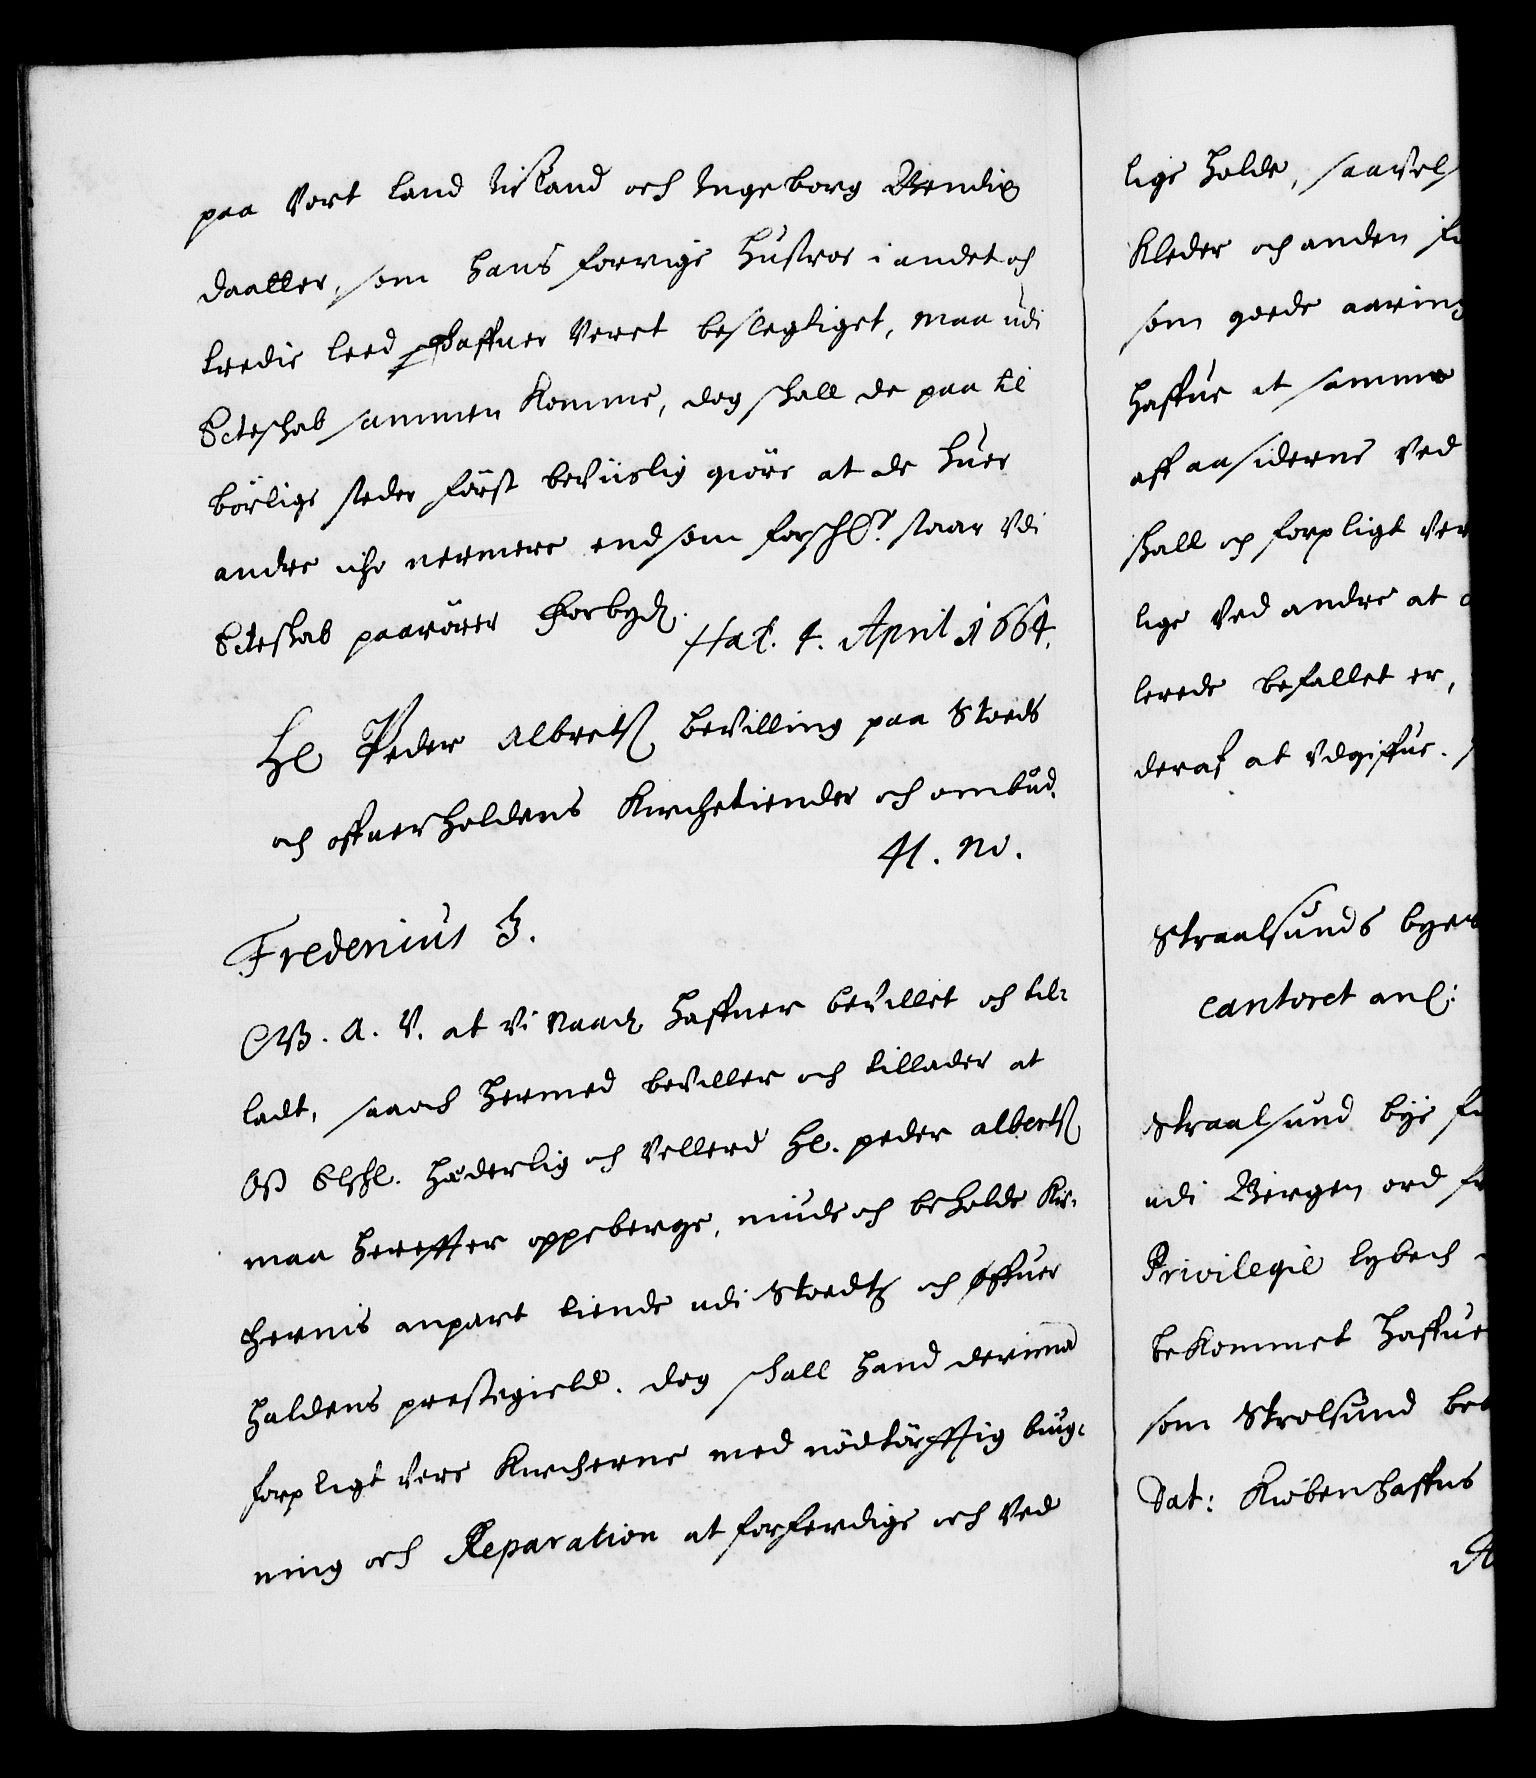 paa Vort land Iisland och Ingeborg Bendix
daatter, som hans forrige hustroe i andet och
tredie leed schaffuer Veret beslegtiget, maa udi
Ecteskab sammen komme, dog skall de paa til
börlige steder först beviislig giöre at de huer
andre icke nermere end som forschr: staar Vdi
Ecteskab paarörer Forbyd.
Haf. 4. April 1664.
Hl Peder Albrets bevilling paa Stoeds
och offuerholdens Kirchetiender och ombud.
H. No.
Fredericus 3.
G. A. V. at Vi Naad haffuer bevillet och til-
ladt, saa och hermed beviller och tillader at
Oß Elskl. hæderlig och Vellerd Hl. peder alberts
maa hereffter oppeberge, niude och beholde Kir-
chernis anpart tiende udi Stoedtz och offuer
haldens prestegield. dog skall hand derimod
forpligt Vere Kircherne med nödtörfftig byug-
ning och Reparation at forferdige och Ved
lige holde, saavel
Kleder och anden
som goede aaring
haffue at samme
aff aasiderne Ved
skall och forpligt Ver
lige Ved andre at
lerede befallet er,
deraf at Vdgiffue.
Straalsunds byes
cantoret anl:
Straalsund bye
udi Bergen ord
Privilegie lybech
bekommet haffue
som Strolsund
Dat: Kiöbenhaffns